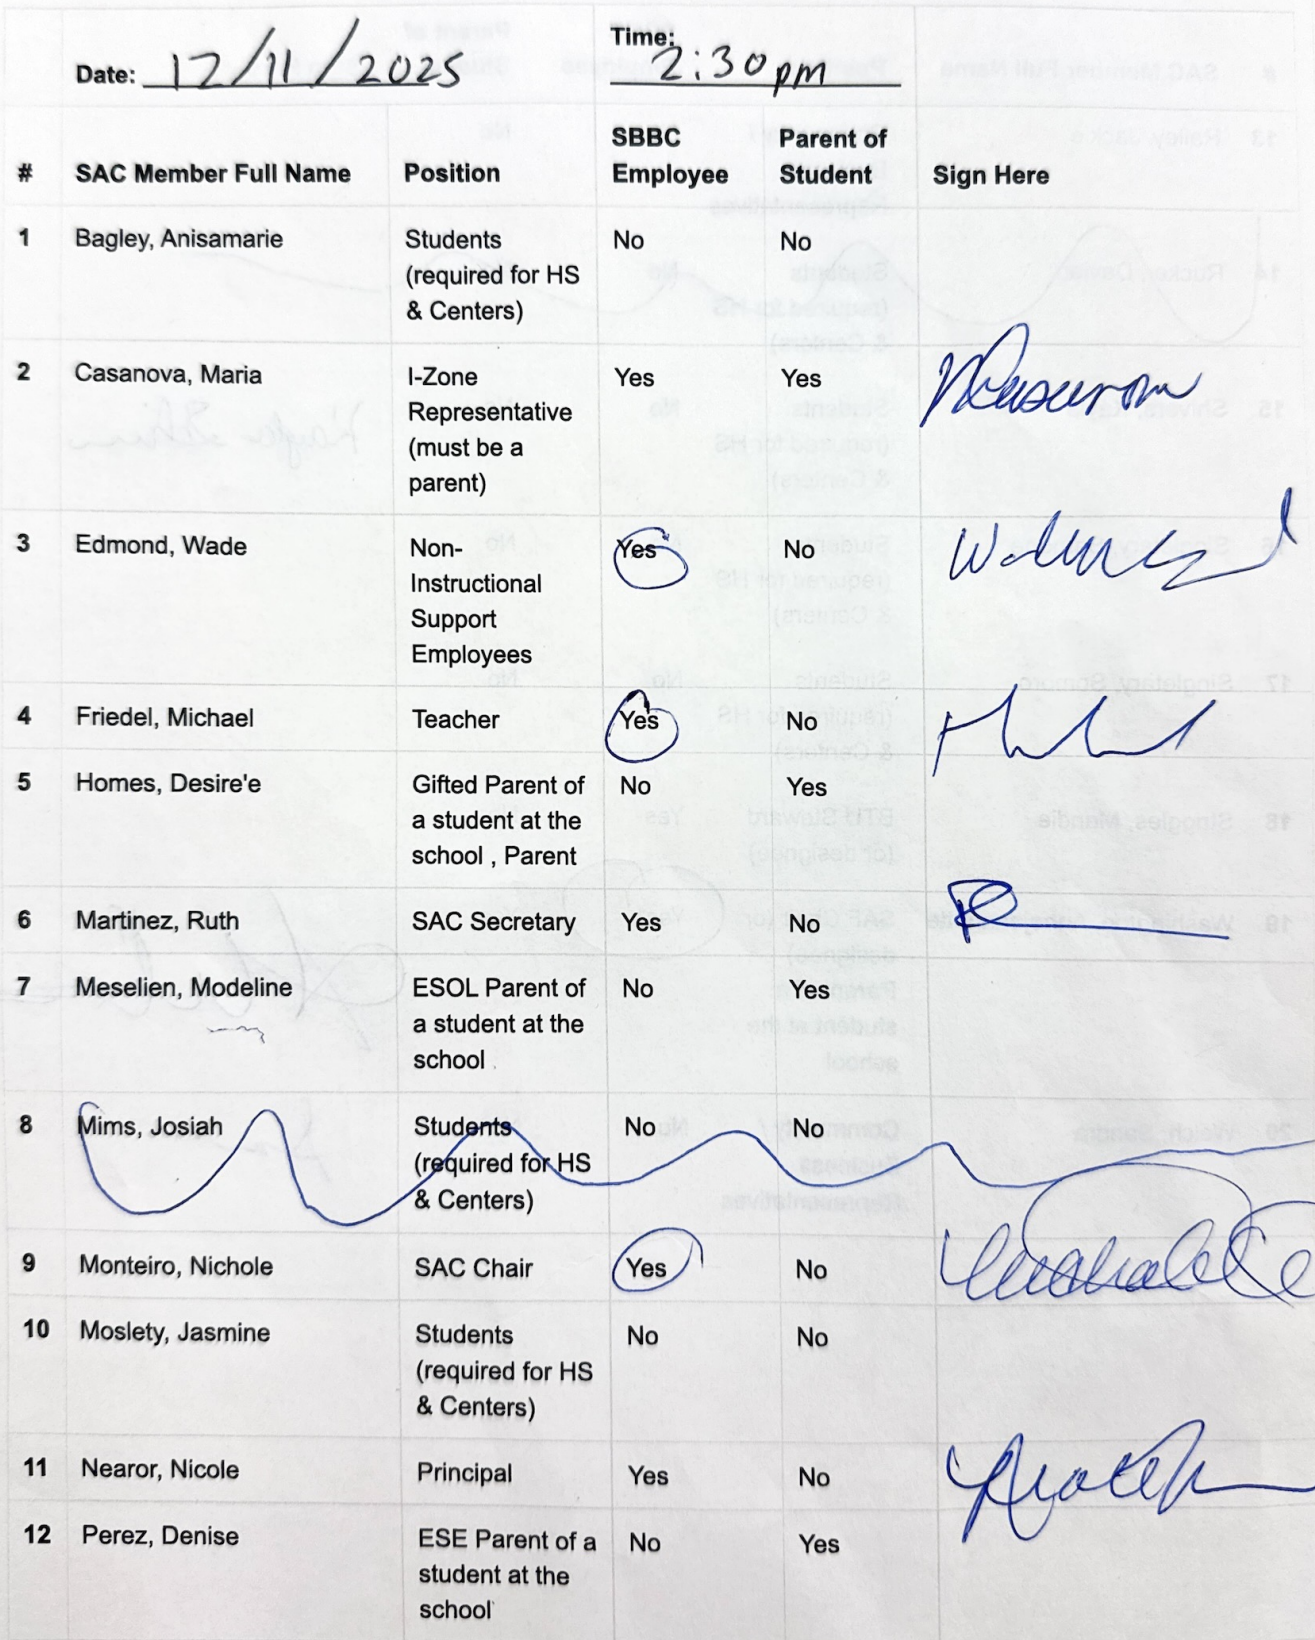 Date: 12/11/2025 Time: 2:30pm
# SAC Member Full Name Position SBBC Employee Parent of Student Sign Here
1 Bagley, Anisamarie Students No No
(required for HS
& Centers)
2 Casanova, Maria I-Zone Yes Yes
Representative
(must be a
parent)
3 Edmond, Wade Non- Yes No
Instructional
Support
Employees
4 Friedel, Michael Teacher Yes No
5 Homes, Desire'e Gifted Parent of No Yes
a student at the
school , Parent
6 Martinez, Ruth SAC Secretary Yes No
7 Meselien, Modeline ESOL Parent of No Yes
a student at the
school
8 Mims, Josiah Students No No
(required for HS
& Centers)
9 Monteiro, Nichole SAC Chair Yes No
10 Moslety, Jasmine Students No No
(required for HS
& Centers)
11 Nearor, Nicole Principal Yes No
12 Perez, Denise ESE Parent of a No Yes
student at the
school